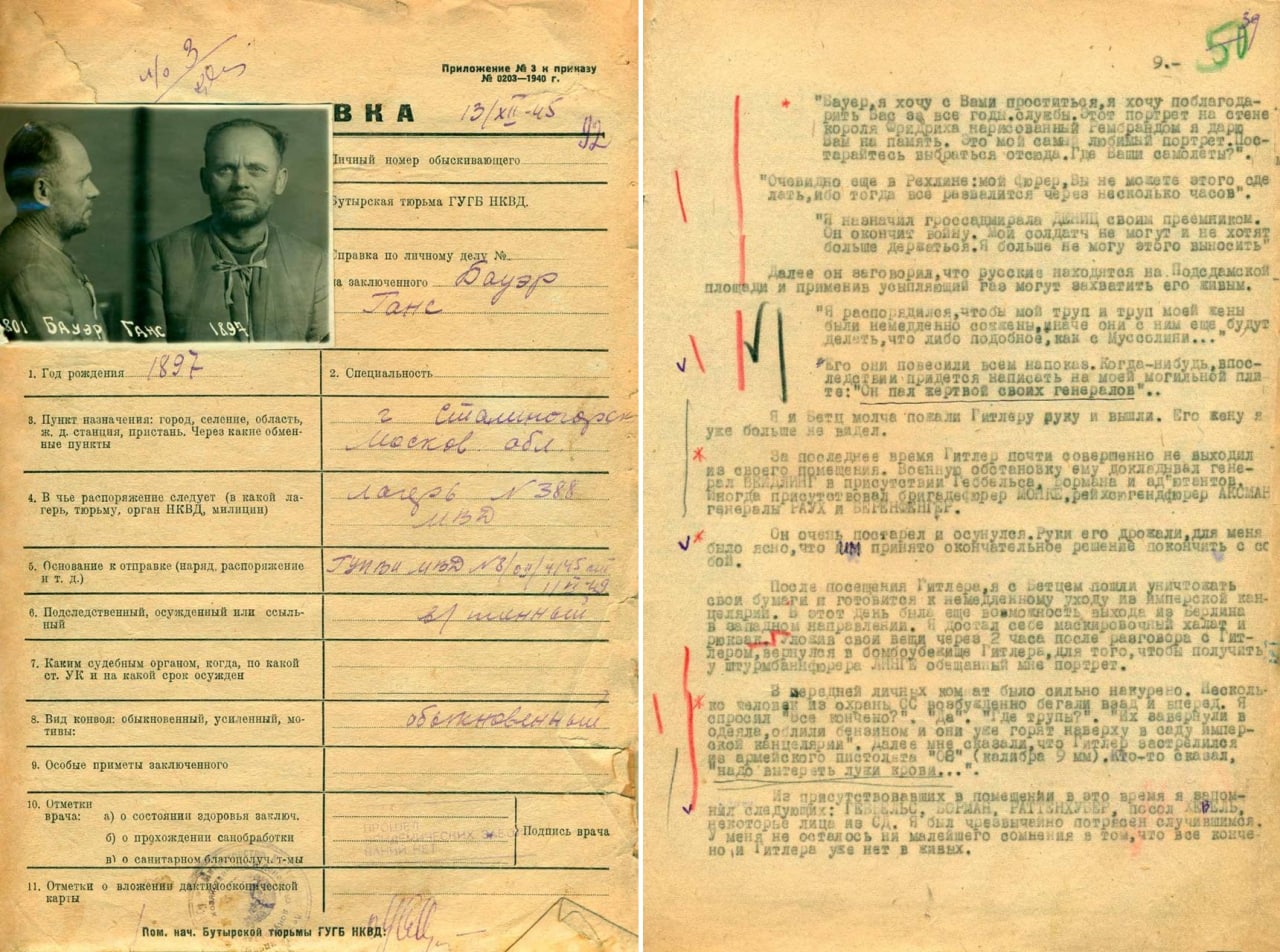 Приложение № 3 к приказу
№ 0203—1940 г.
ВКА
13/XII-45
92
Личный номер обыскивающего
Бутырская тюрьма ГУГБ НКВД.
Справка по личному делу №
на заключенного Бауэр
Ганс
801 БАУЭР ГАНС 1897
1. Год рождения 1897
2. Специальность
3. Пункт назначения: город, селение, область,
ж. д. станция, пристань. Через какие обмен-
ные пункты
г Сталиногорск
Москов обл
4. В чье распоряжение следует (в какой ла-
герь, тюрьму, орган НКВД, милиции)
лагерь N 388
МВД
5. Основание к отправке (наряд, распоряжение
и т. д.)
6. Подследственный, осужденный или ссыль-
ный
в/пленный
7. Каким судебным органом, когда, по какой
ст. УК и на какой срок осужден
8. Вид конвоя: обыкновенный, усиленный, мо-
тивы:
обыкновенный
9. Особые приметы заключенного
10. Отметки
врача:
а) о состоянии здоровья заключ.
б) о прохождении санобработки
в) о санитарном благополуч. т-мы
Подпись врача
11. Отметки о вложении дактилоскопической
карты
Пом. нач. Бутырской тюрьмы ГУГБ НКВД:
39
50
9.-
"Бауэр,я хочу с Вами проститься,я хочу поблагода-
рить Вас за все годы службы.Этот портрет на стене
короля Фридриха нарисованный Рембрандом я дарю
Вам на память. Это мой самый любимый портрет.Пос-
тарайтесь выбраться отсюда.Где Ваши самолеты?".
"Очевидно еще в Рехлине:мой фюрер,Вы не можете этого сде
лать,ибо тогда все развалится через несколько часов".
"Я назначил гроссадмирала ДЕНИЦ своим преемником.
Он окончит войну. Мои солдаты не могут и не хотят
больше держаться.Я больше не могу этого выносить"
Далее он заговорил,что русские находятся на Подсдамской
площади и применив усыпляющий газ могут захватить его живым.
"Я распорядился,чтобы мой труп и труп моей жены
были немедленно сожжены,иначе они с ним еще будут
делать,что либо подобное,как с Муссолини..."
"Его они повесили всем напоказ.Когда-нибудь,впос-
ледствии придется написать на моей могильной пли
те:"Он пал жертвой своих генералов"..
Я и Бетц молча пожали Гитлеру руку и вышли. Его жену я
уже больше не видел.
За последнее время Гитлер почти совершенно не выходил
из своего помещения. Военную обстановку ему докладывал гене-
рал ВЕЙДЛИНГ в присутствии Геббельса, Бормана и ад"ютантов.
Иногда присутствовал бригадефюрер МОНКЕ,рейхсюгендфюрер АКСМАН
генералы РАУХ и БЕРЕНФЕНГЕР.
Он очень постарел и осунулся.Руки его дрожали,для меня
было ясно,что им принято окончательное решение покончить с со
бой.
После посещения Гитлера,я с Бетцем пошли уничтожать
свои бумаги и готовится к немедленному уходу из имперской кан-
целярии. В этот день была еще возможность выхода из Берлина
в западном направлении. Я достал себе маскировочный халат и
рюкзак. Уложив свои вещи через 2 часа после разговора с Гит-
лером,вернулся в бомбоубежище Гитлера,для того,чтобы получить
у штурмбаннфюрера ЛИНГЕ обещанный мне портрет.
В передней личных комнат было сильно накурено. Несколь-
ко человек из охраны СС возбужденно бегали взад и вперед. Я
спросил "Все кончено?". "Да". "Где трупы?". "Их завернули в
одеяла,облили бензином и они уже горят наверху в саду импер-
ской канцелярии". Далее мне сказали,что Гитлер застрелился
из армейского пистолета "08" (калибра 9 мм).Кто-то сказал,
"надо вытереть лужи крови...".
Из присутствовавших в помещении в это время я запом-
нил следующих: ГЕББЕЛЬС, БОРМАН, РАТТЕНХУБЕР, посол ХЕВЕЛЬ,
некоторые лица из СД. Я был чрезвычайно потрясен случившимся.
У меня не осталось ни малейшего сомнения в том,что все конче-
но и Гитлера уже нет в живых.